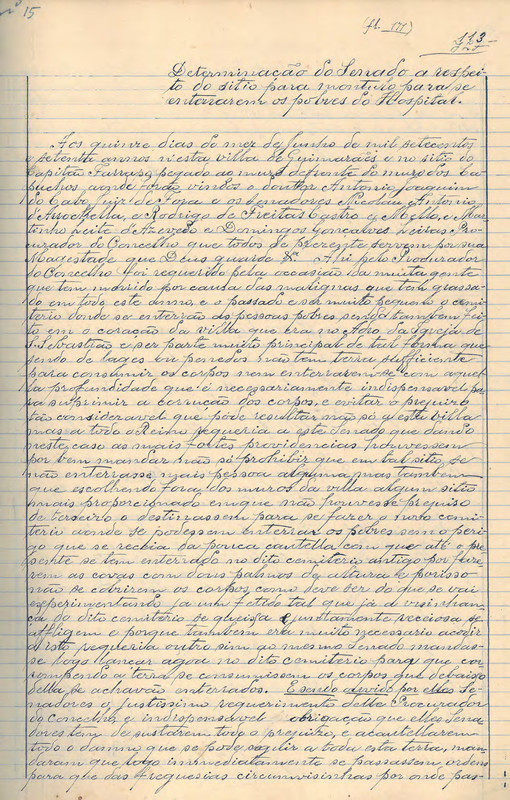 nº 15
(fl. 171)
113
Determinação do Senado a respei-
to do sitio para monturo para se
enterrarem os pobres do Hospital.
Aos quinze dias do mez de Junho de mil setecentos
e setenta annos n'esta villa de Guimarães e no sitio do
Capitão pegado ao muro defronte do muro dos Ca-
puchos aonde forão vindos o doutor Antonio Joaquim
do Cabo Juiz de Fora e os Senadores Nicolau Antonio
d'Arrochella, e Rodrigo de Freitas Castro e Mello, e Mar-
tinho Leite d'Azevedo e Domingos Gonçalves Pro-
curador do Concelho que todos de prezente servem por sua
Magestade que Deus guarde &ª. Ahi pelo Procurador
do Concelho foi requerido pela occasião da muita gente
que tem morrido por causa das malignas que tem grassa-
do em todo este anno, e o passado e ser muito pequeno o cemi-
terio donde se enterrão as pessoas pobres sendo tambem fei-
to em o coração da villa que era no Adro da Igreja de
S. Sebastião e ser parte muito principal de tal forma que
sendo de lages ou penedos não tem terra sufficiente
para consumir os corpos nem enterrarem-se com aquel-
la profundidade que é necessariamente indispensavel pa-
ra suprimir a corrução dos corpos, e evitar o prejuizo
tão consideravel que póde resultar não só a esta villa
mas a todo o Reino requeria a este Senado que dando
neste caso as mais fortes providencias houvessem
por bem mandar não só prohibir que em tal sitio se
não enterrasse mais pessoa alguma mas tambem
que escolhendo fóra dos muros da villa algum sitio
mais proporcionado em que não houvesse prejuiso
de terceiro o destinassem para se fazer o novo cemi-
terio aonde se podessem enterrar os pobres sem o peri-
go que se recbia da pouca cautella com que até o pre-
sente se tem enterrado no dito cemiterio antigo por faze-
rem as covas com dous palmos de altura e por isso
não se cobrirem os corpos como deve ser do que se vai
experimentando ja um fetido tal que já a visinhan-
ça do dito cemiterio se queixa e justamente receiosa se
affligem e porque tambem era muito necessario acodir
a isto requeria outro sim ao mesmo Senado mandas-
se logo lançar agoa no dito cemiterio para que cor-
rompendo a terra se consumissem os corpos que debaixo
della se achavão enterrados. E sendo ouvido por elles Se-
nadores o justissimo requerimento delle Procurador
do concelho, e indispensavel obrigação que elles Sena-
dores tem de sustarem todo o prejuizo, e acautellarem
todo o damno que se pode seguir a toda esta terra, man-
daram que logo immediatamente se passassem ordens
para que das freguesias circumvisinhas por onde pas-